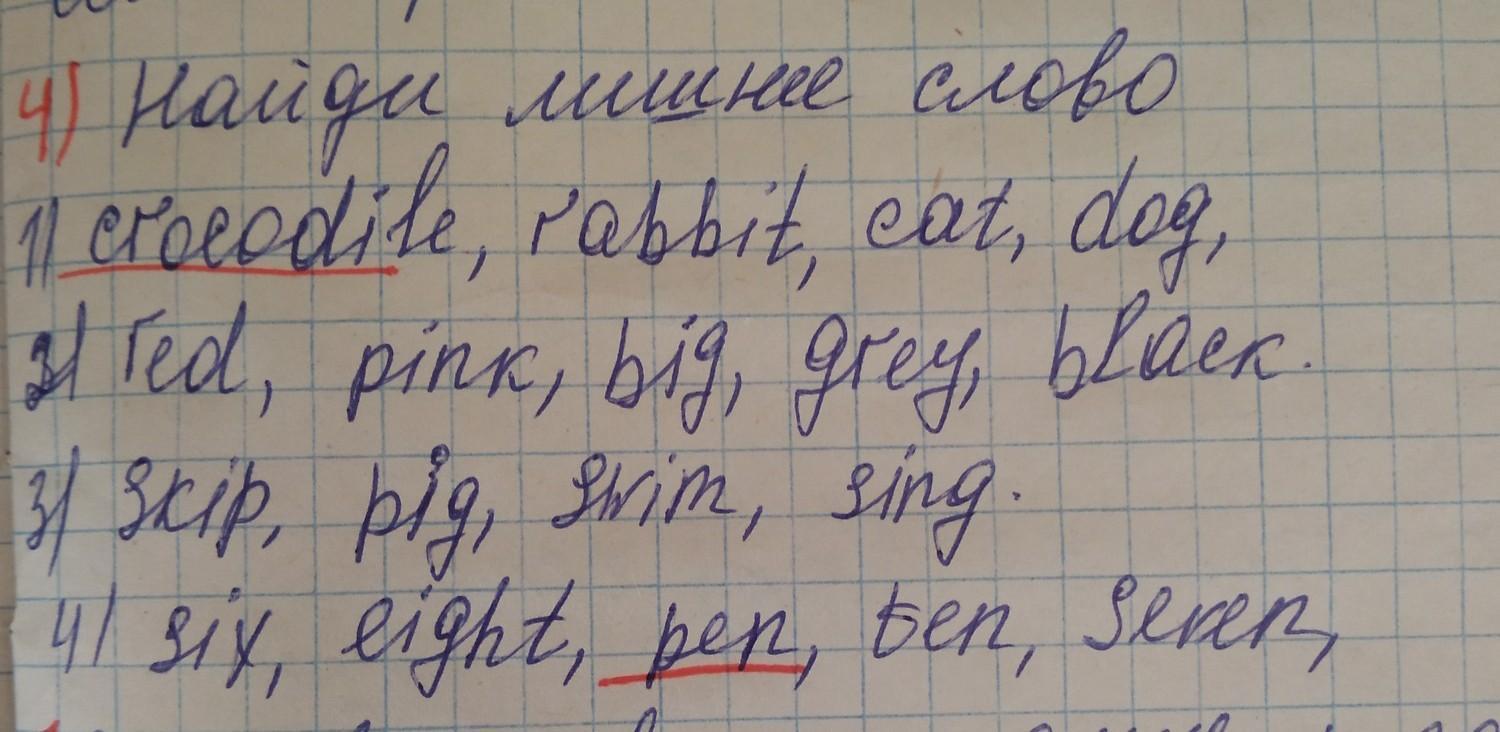 4) Найди лишнее слово
1) crocodile, rabbit, cat, dog,
2) red, pink, big, grey, black.
3) skip, pig, swim, sing.
4) six, eight, pen, ten, seven,